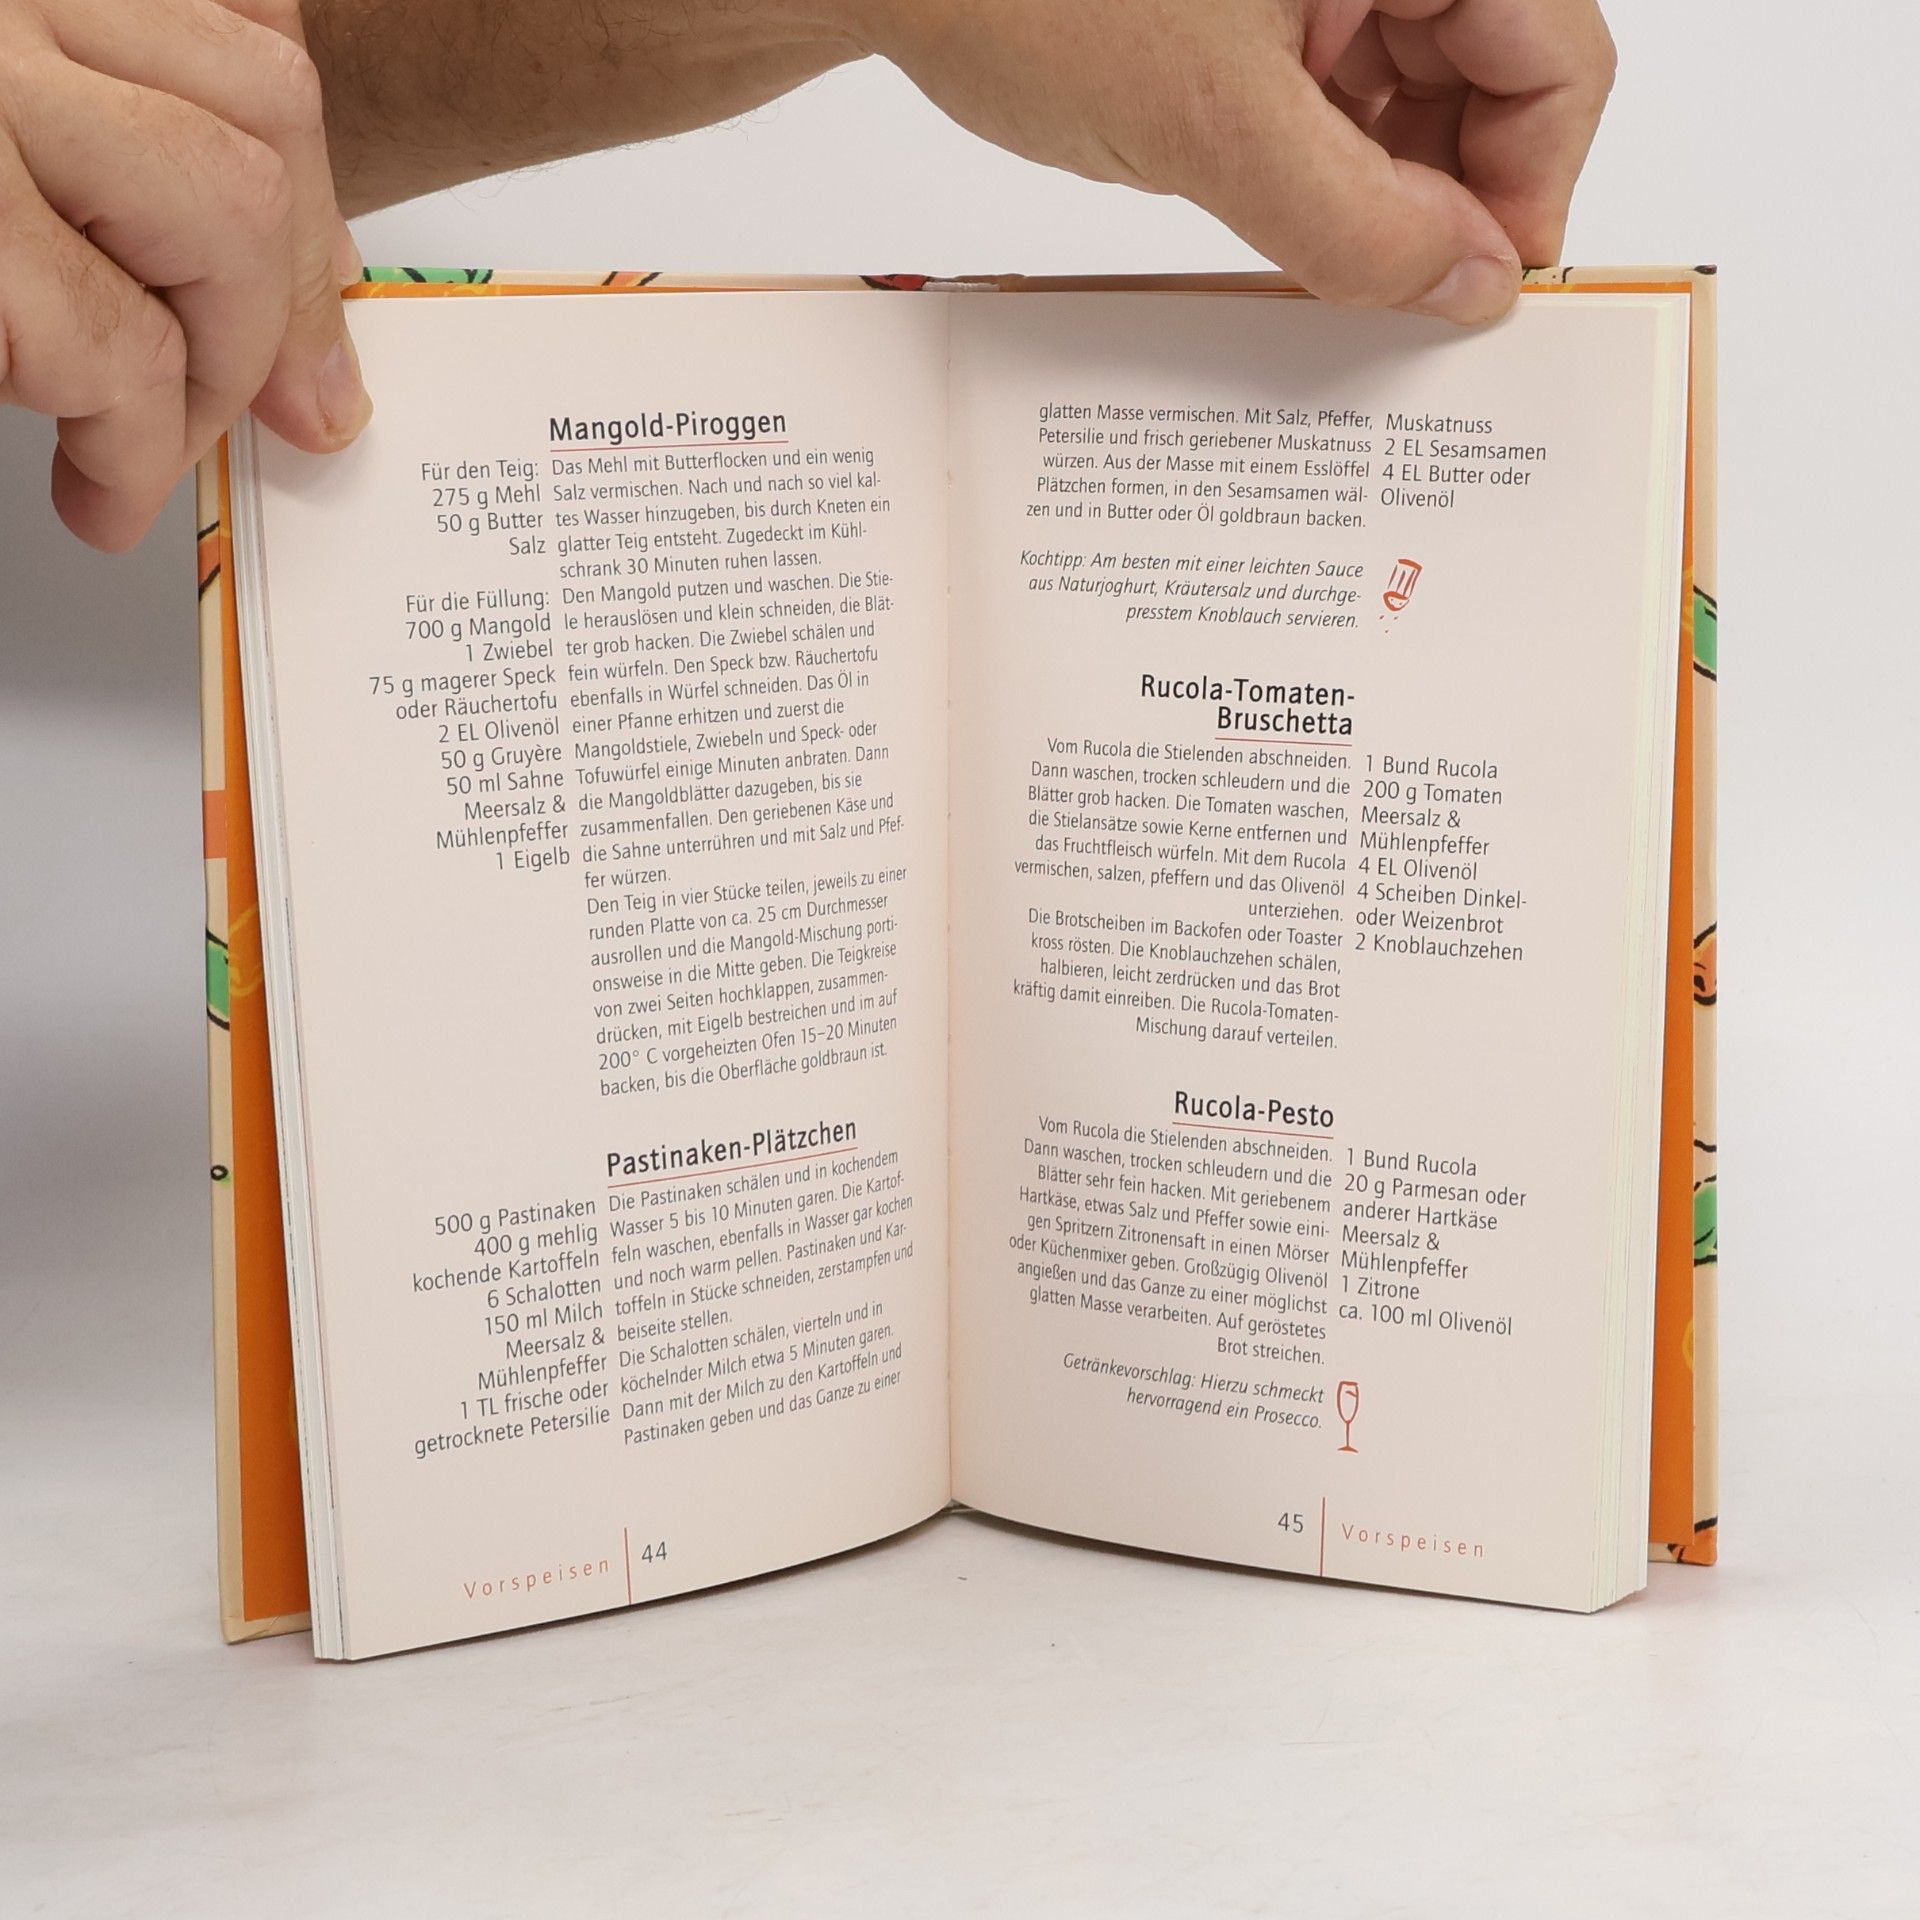 Mangold-Piroggen
Für den Teig:
275 g Mehl
50 g Butter
Salz
Für die Füllung:
700 g Mangold
1 Zwiebel
75 g magerer Speck
oder Räuchertofu
2 EL Olivenöl
50 g Gruyère
50 ml Sahne
Meersalz &
Mühlenpfeffer
1 Eigelb
Das Mehl mit Butterflocken und ein wenig
Salz vermischen. Nach und nach so viel kal-
tes Wasser hinzugeben, bis durch Kneten ein
glatter Teig entsteht. Zugedeckt im Kühl-
schrank 30 Minuten ruhen lassen.
Den Mangold putzen und waschen. Die Stie-
le herauslösen und klein schneiden, die Blät-
ter grob hacken. Die Zwiebel schälen und
fein würfeln. Den Speck bzw. Räuchertofu
ebenfalls in Würfel schneiden. Das Öl in
einer Pfanne erhitzen und zuerst die
Mangoldstiele, Zwiebeln und Speck- oder
Tofuwürfel einige Minuten anbraten. Dann
die Mangoldblätter dazugeben, bis sie
zusammenfallen. Den geriebenen Käse und
die Sahne unterrühren und mit Salz und Pfef-
fer würzen.
Den Teig in vier Stücke teilen, jeweils zu einer
runden Platte von ca. 25 cm Durchmesser
ausrollen und die Mangold-Mischung porti-
onsweise in die Mitte geben. Die Teigkreise
von zwei Seiten hochklappen, zusammen-
drücken, mit Eigelb bestreichen und im auf
200° C vorgeheizten Ofen 15–20 Minuten
backen, bis die Oberfläche goldbraun ist.
Pastinaken-Plätzchen
500 g Pastinaken
400 g mehlig
kochende Kartoffeln
6 Schalotten
150 ml Milch
Meersalz &
Mühlenpfeffer
1 TL frische oder
getrocknete Petersilie
Die Pastinaken schälen und in kochendem
Wasser 5 bis 10 Minuten garen. Die Kartof-
feln waschen, ebenfalls in Wasser gar kochen
und noch warm pellen. Pastinaken und Kar-
toffeln in Stücke schneiden, zerstampfen und
beiseite stellen.
Die Schalotten schälen, vierteln und in
köchelnder Milch etwa 5 Minuten garen.
Dann mit der Milch zu den Kartoffeln und
Pastinaken geben und das Ganze zu einer
Vorspeisen 44
glatten Masse vermischen. Mit Salz, Pfeffer,
Petersilie und frisch geriebener Muskatnuss
würzen. Aus der Masse mit einem Esslöffel
Plätzchen formen, in den Sesamsamen wäl-
zen und in Butter oder Öl goldbraun backen.
Muskatnuss
2 EL Sesamsamen
4 EL Butter oder
Olivenöl
Kochtipp: Am besten mit einer leichten Sauce
aus Naturjoghurt, Kräutersalz und durchge-
presstem Knoblauch servieren.
Rucola-Tomaten-
Bruschetta
Vom Rucola die Stielenden abschneiden.
Dann waschen, trocken schleudern und die
Blätter grob hacken. Die Tomaten waschen,
die Stielansätze sowie Kerne entfernen und
das Fruchtfleisch würfeln. Mit dem Rucola
vermischen, salzen, pfeffern und das Olivenöl
unterziehen.
Die Brotscheiben im Backofen oder Toaster
kross rösten. Die Knoblauchzehen schälen,
halbieren, leicht zerdrücken und das Brot
kräftig damit einreiben. Die Rucola-Tomaten-
Mischung darauf verteilen.
1 Bund Rucola
200 g Tomaten
Meersalz &
Mühlenpfeffer
4 EL Olivenöl
4 Scheiben Dinkel-
oder Weizenbrot
2 Knoblauchzehen
Rucola-Pesto
Vom Rucola die Stielenden abschneiden.
Dann waschen, trocken schleudern und die
Blätter sehr fein hacken. Mit geriebenem
Hartkäse, etwas Salz und Pfeffer sowie eini-
gen Spritzern Zitronensaft in einen Mörser
oder Küchenmixer geben. Großzügig Olivenöl
angießen und das Ganze zu einer möglichst
glatten Masse verarbeiten. Auf geröstetes
Brot streichen.
1 Bund Rucola
20 g Parmesan oder
anderer Hartkäse
Meersalz &
Mühlenpfeffer
1 Zitrone
ca. 100 ml Olivenöl
Getränkevorschlag: Hierzu schmeckt
hervorragend ein Prosecco.
45 Vorspeisen